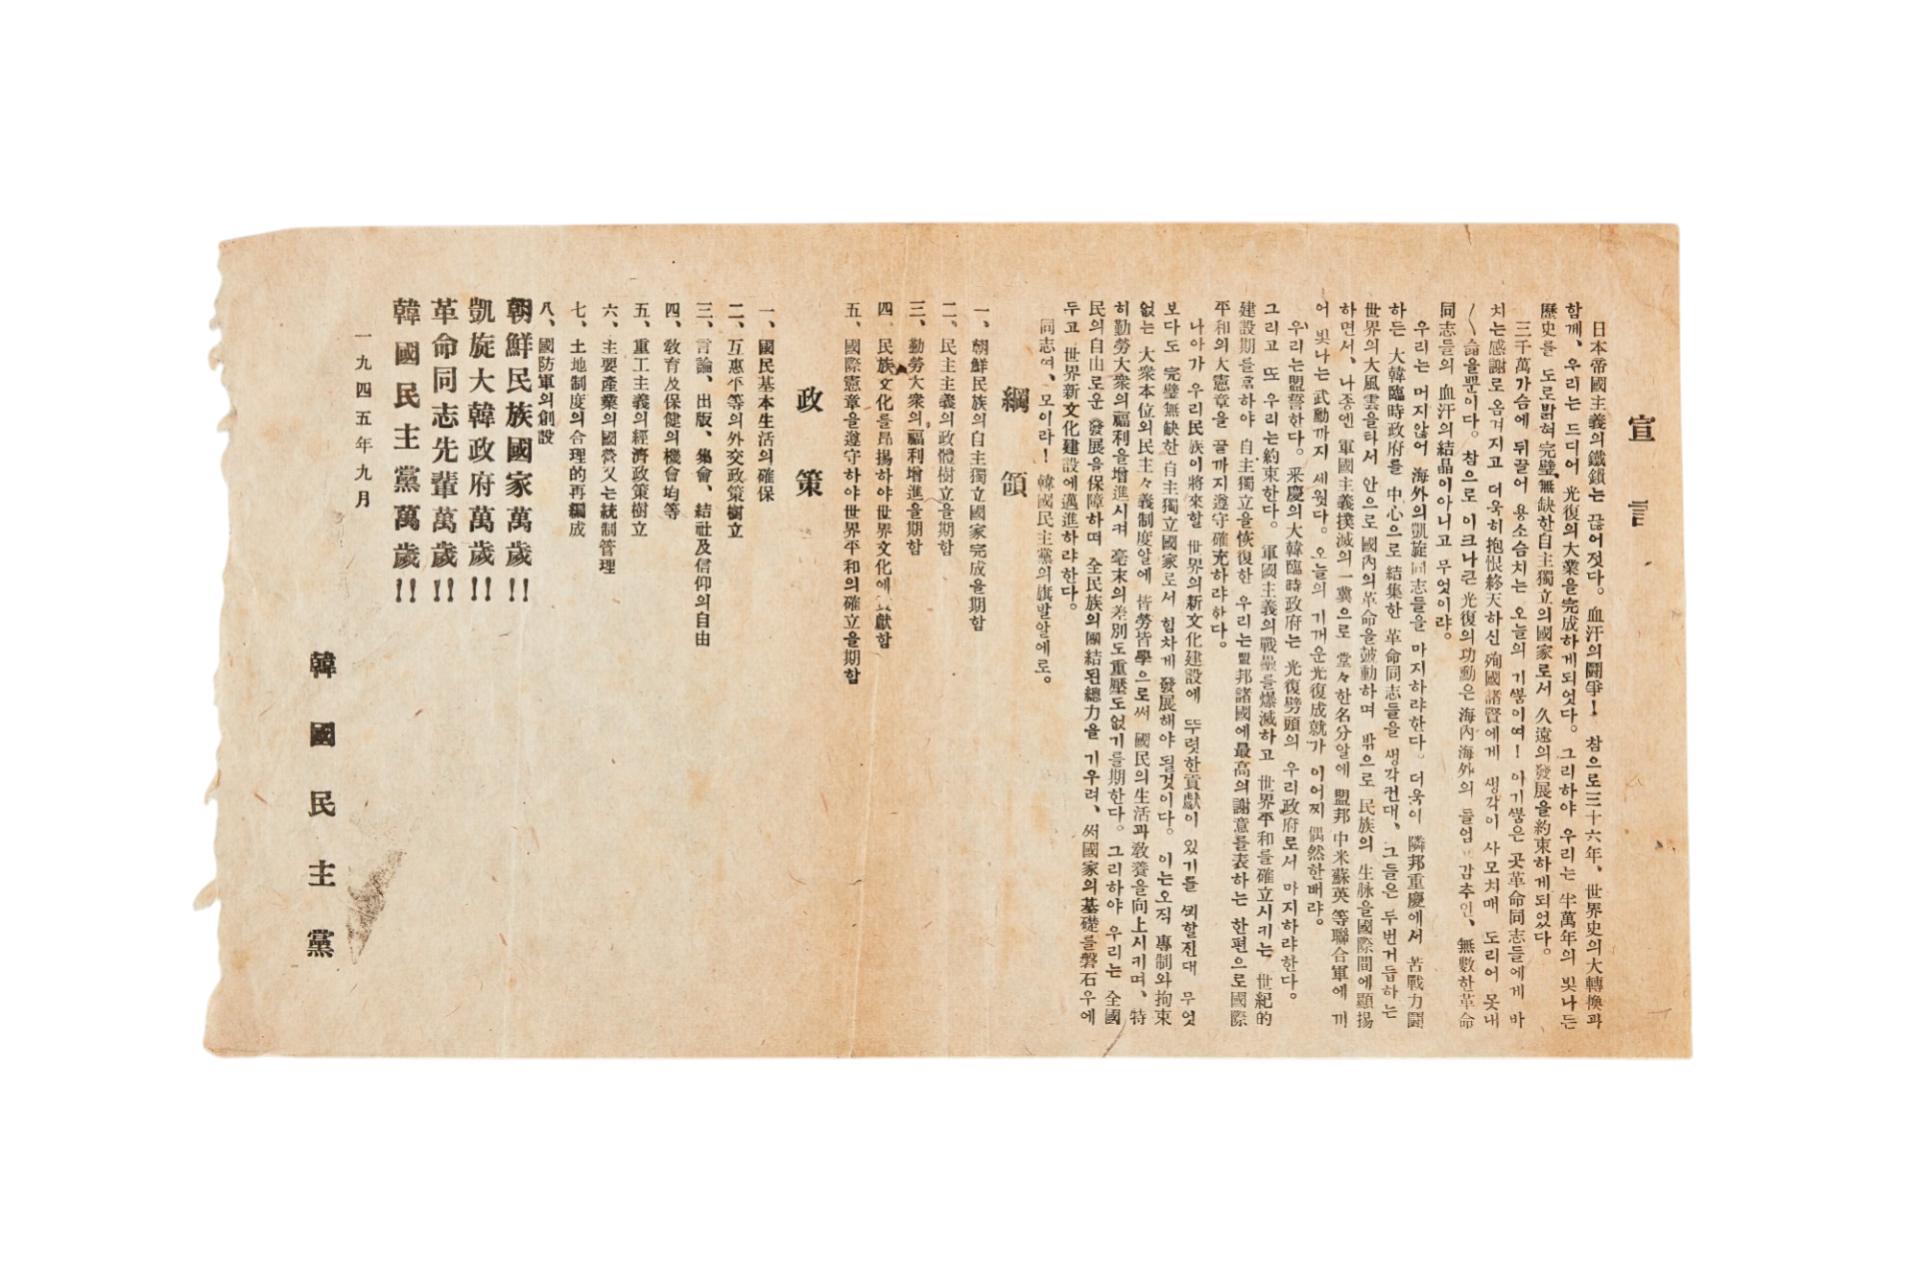 宣言
日本帝國主義의鐵鎖는 끊어젓다。血汗의鬪爭！ 참으로三十六年、世界史의大轉換과
함께、우리는 드디어 光復의大業을完成하게되엇다。그리하야 우리는 半萬年의 빛나든
歷史를 도로밝혀完璧、無缺한自主獨立의國家로서 久遠의發展을約束하게되었다。
三千萬가슴에 뒤끌어 용소슴치는 오늘의 기쁨이여！ 이기쁨은 곳革命同志들에게 바
치는感謝로옴겨지고 더욱히抱恨終天하신 殉國諸賢에게 생각이 사모치매 도리어 못내
〱슲을뿐이다。참으로 이크나큰 光復의功勳은 海內海外의 들엄 감추인、無數한革命
同志들의 血汗의結晶이아니고 무엇이랴。
우리는 머지않어 海外의凱旋同志들을 마지하랴한다。더욱이 隣邦重慶에서 苦戰力鬪
하든 大韓臨時政府를 中心으로 結集한 革命同志들을 생각컨대、그들은 두번거듭하는
世界의大風雲을타서 안으로 國內의革命을鼓動하며 밖으로 民族의 生脉을國際間에顯揚
하면서、나종엔 軍國主義撲滅의一翼으로 堂々한名分알에 盟邦 中米蘇英 等聯合軍에 끼
어 빛나는 武勳까지 세웟다。오늘의 기꺼운光復成就가 이어찌 偶然한배랴。
우리는盟誓한다。釆慶의大韓臨時政府는 光復劈頭의 우리政府로서 마지하랴한다。
그리고 또 우리는約束한다。軍國主義의戰壘를爆滅하고 世界平和를確立시키는 世紀的
建設期를 하야 自主獨立을恢復한 우리는盟邦諸國에最高의謝意를表하는 한편으로國際
平和의大憲章을 끝까지遵守確充하랴하다。
나아가 우리民族이將來할 世界의新文化建設에 뚜렷한貢獻이 있기를 꾀할진대 무엇
보다도 完璧無缺한 自主獨立國家로서 힘차게 發展해야 될것이다。이는오직 專制와拘束
없는 大衆本位의民主々義制度알에 皆勞皆學으로써 國民의生活과敎養을向上시키며、特
히勤勞大衆의福利을增進시켜 毫末의差別도重壓도없기를期한다。그리하야 우리는 全國
民의自由로운 發展을保障하며 全民族의團結된總力을 기우려、써國家의基礎를磐石우에
두고 世界新文化建設에邁進하랴한다。
同志여、모이라！韓國民主黨의旗발알에로。
綱領
一、朝鮮民族의自主獨立國家完成을期함
二、民主主義의政體樹立을期함
三、勤勞大衆의福利增進을期함
四、民族文化를昂揚하야世界文化에 獻함
五、國際憲章을遵守하야世界平和의確立을期함
政策
一、國民基本生活의確保
二、互惠平等의外交政策樹立
三、言論、出版、集會、結社及信仰의自由
四、敎育及保健의機會均等
五、重工主義의經濟政策樹立
六、主要產業의國營又는統制管理
七、土地制度의合理的再編成
八、國防軍의創設
朝鮮民族國家萬歲!!
凱旋大韓政府萬歲!!
革命同志先輩萬歲!!
韓國民主黨萬歲!!
一九四五年九月
韓國民主黨